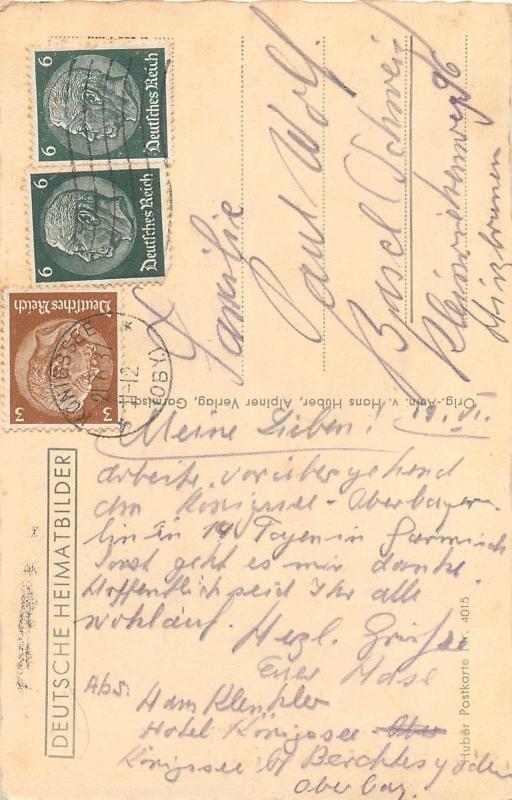 6
Deutsches Reich
6
Deutsches Reich
3
Deutsches Reich
KÖNIGSSEE
(OBY)
Familie
Paul Wolf.
Basel Schweiz
96
Orig.-Aufn. v. Hans Huber, Alpiner Verlag, Garmisch
DEUTSCHE HEIMATBILDER
Huber Postkarte Nr. 4015
19. VI.
Meine Lieben!
arbeite vorübergehend
am Königssee - Oberbayern
bin in 14 Tagen in Garmisch
sonst geht es mir danke
Hoffentlich seid Ihr alle
wohlauf. Herzl. Grüsse
Euer
Abs. Hans
Hotel Königssee
Königssee bei Berchtesgaden
Oberbay.